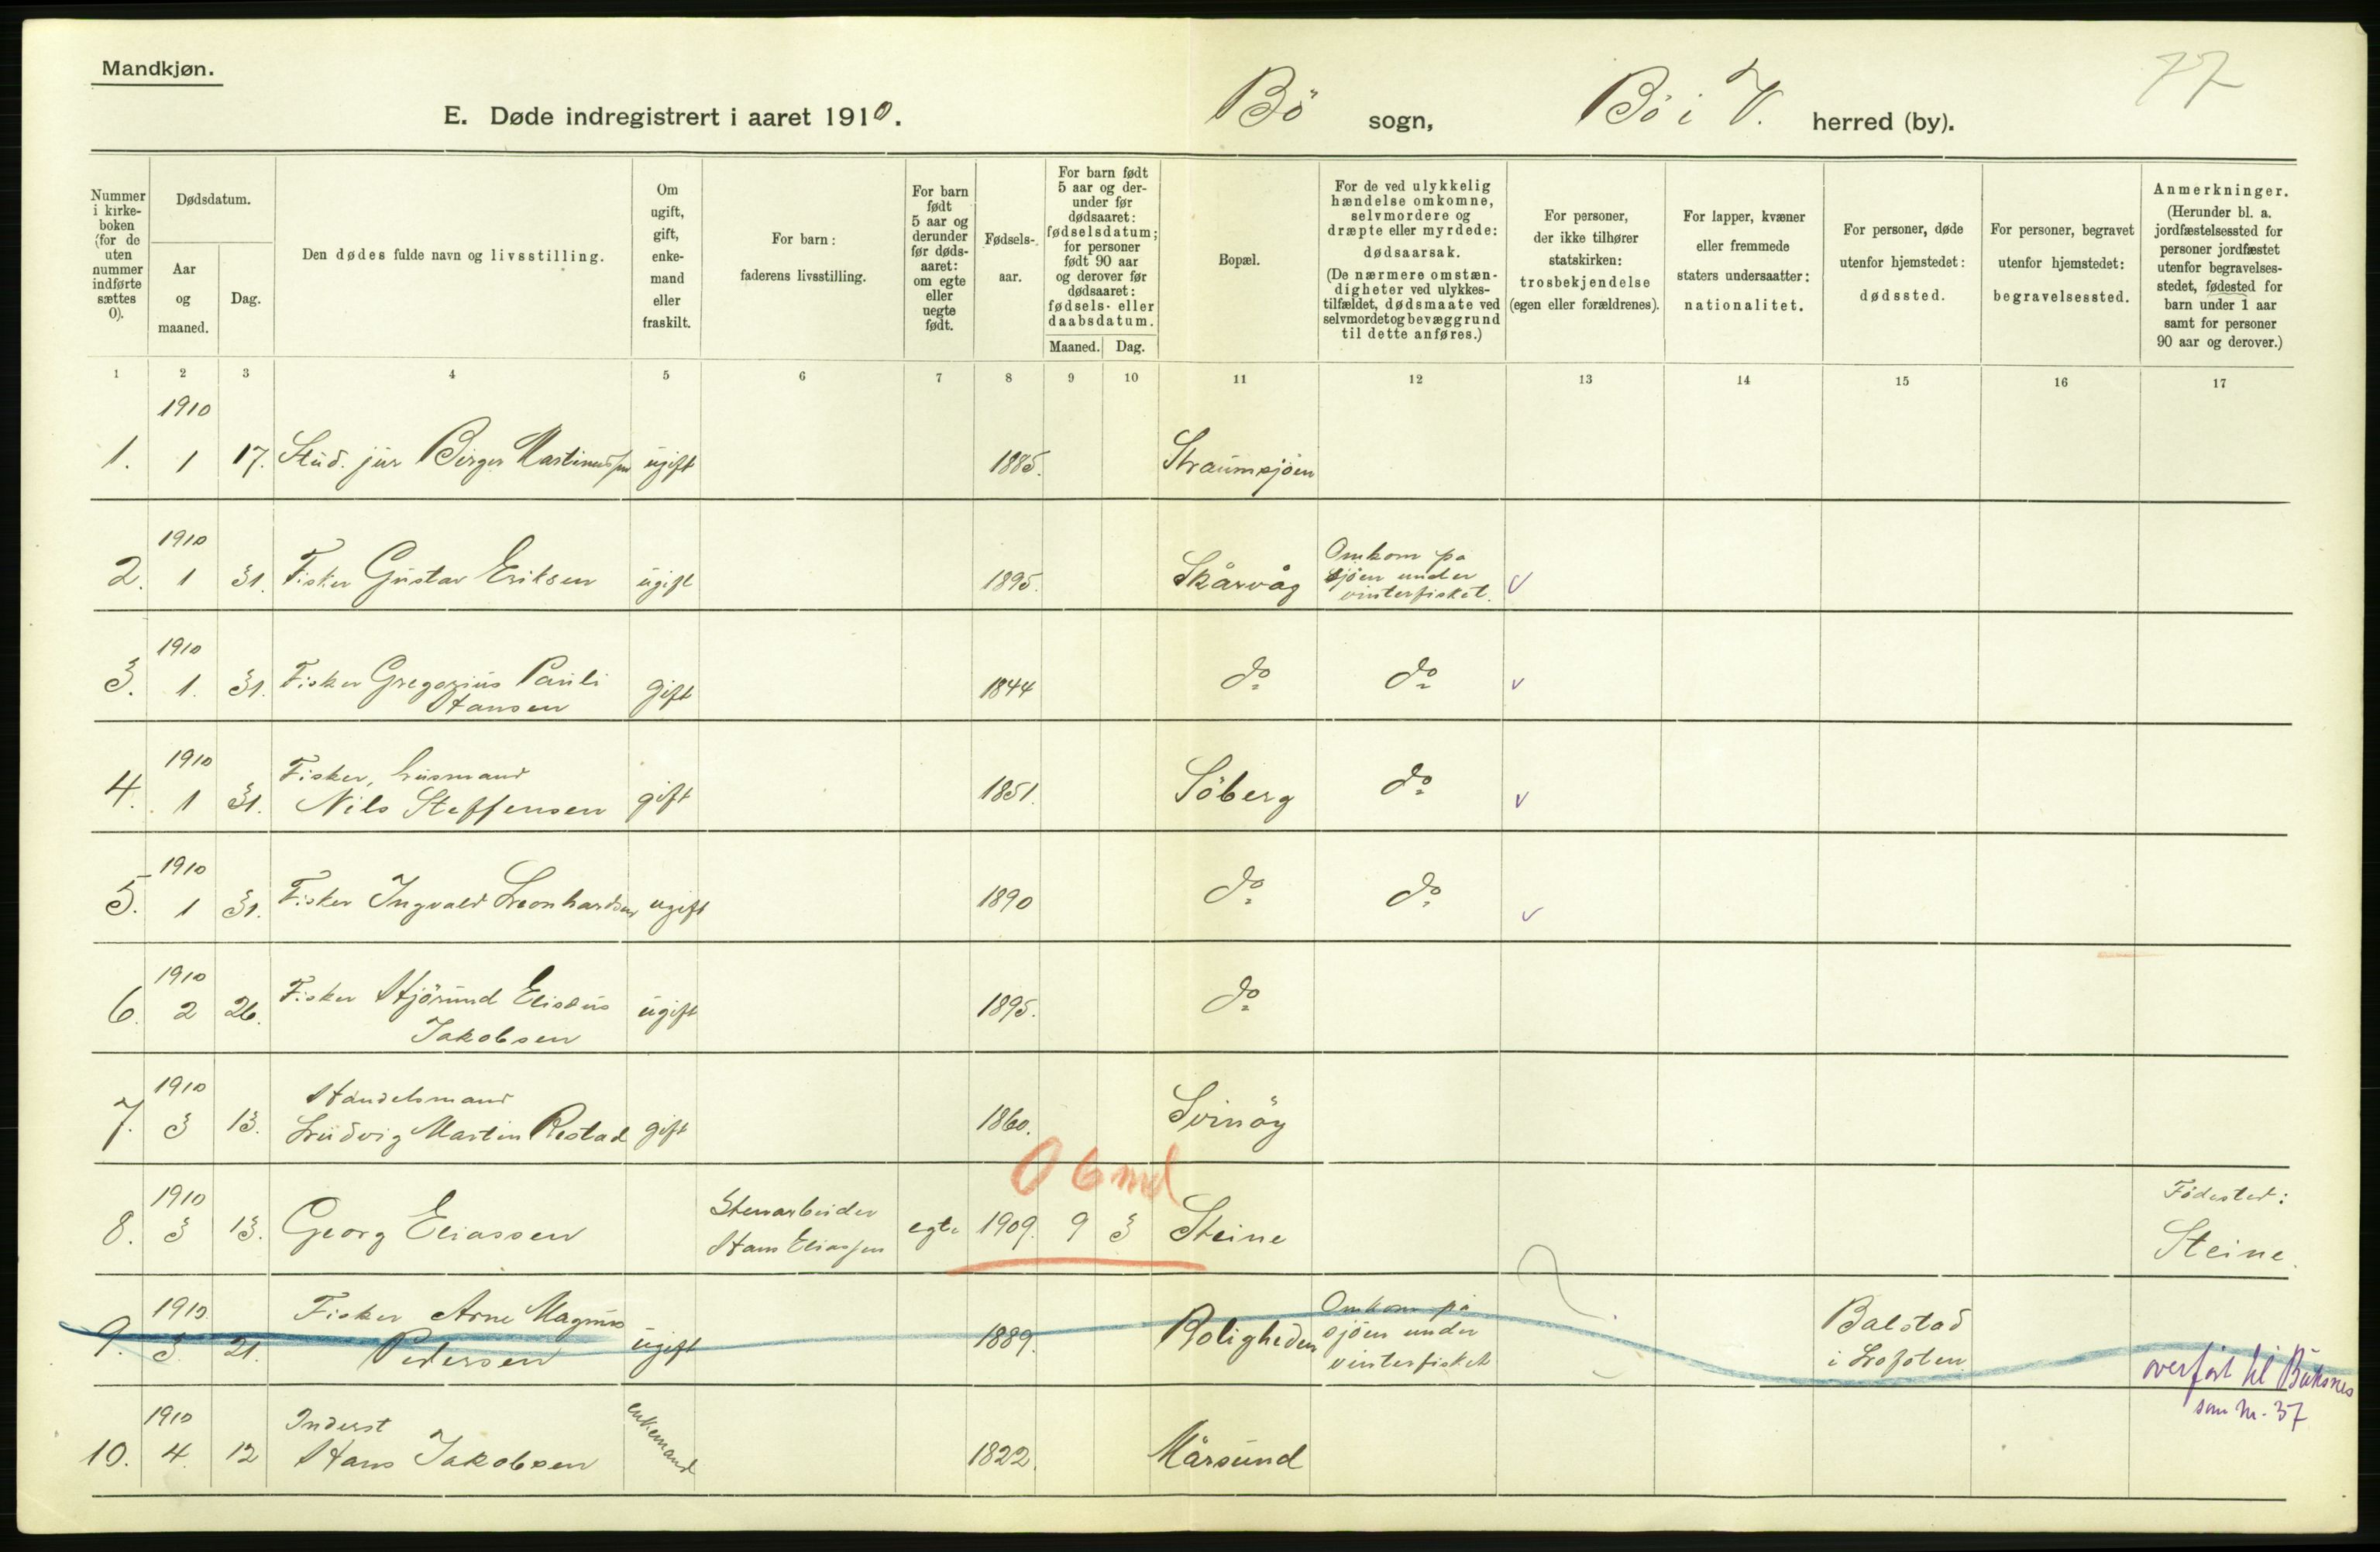 Mandkjøn.
77
E. Døde indregistrert i aaret 1910.
Bö sogn, Bö i V. herred (by).
Nummer
i kirke-
boken
(for de
uten
nummer
indførte
sættes
0).
Dødsdatum.
Aar
og
maaned.
Dag.
Den dødes fulde navn og livsstilling.
Om
ugift,
gift,
enke-
mand
eller
fraskilt.
For barn:
faderens livsstilling.
For barn
født
5 aar og
derunder
før døds-
aaret:
om egte
eller
uegte
født.
Fødsels-
aar.
For barn født
5 aar og der-
under før
dødsaaret:
fødselsdatum;
for personer
født 90 aar
og derover før
dødsaaret:
fødsels- eller
daabsdatum.
Maaned. Dag.
Bopæl.
For de ved ulykkelig
hændelse omkomne,
selvmordere og
dræpte eller myrdede:
dødsaarsak.
(De nærmere omstæn-
digheter ved ulykkes-
tilfældet, dødsmaate ved
selvmord et og bevæggrund
til dette anføres.)
For personer,
der ikke tilhører
statskirken:
trosbekjendelse
(egen eller forældrenes).
For lapper, kvæner
eller fremmede
staters undersaatter:
nationalitet.
For personer, døde
utenfor hjemstedet:
dødssted.
For personer, begravet
utenfor hjemstedet:
begravelsessted.
Anmerkninger.
(Herunder bl. a.
jordfæstelsessted for
personer jordfæstet
utenfor begravelses-
stedet, fødested for
barn under 1 aar
samt for personer
90 aar og derover.)
1 2 3 4 5 6 7 8 9 10 11 12 13 14 15 16 17
1910
1. 1 17. Stud. jur Birger Martinussen ugift 1885. Straumsjöen
1910 Omkom pa
2. 1 31. Fisker Gustav Eriksen ugift 1895. Skårvåg sjöen under
vinterfisket.
1910
3. 1. 31. Fisker Gregorius Pauli gift 1844 do do
Hansen
1910 Fisker, husmand
4. 1 31. Nils Steffensen gift 1851. Söberg do
1910
5. 1 31. Fisker Ingvald Leonhardsen ugift 1890 do do
1910
6. 2 26. Fisker Hjörund Eliseus ugift 1895. do
Jakobsen
1910 Handelsmand
7. 3 13. Ludvig Martin Restad gift 1860. Svinöy
0 6 md
1910 Stenarbeider Födested:
8. 3 13. Georg Eliassen Hans Eliassen egte 1909. 9 3 Steine Steine.
1910 Fisker Arne Magnus Omkom på Balstad
9. 3 21. Pedersen ugift 1889. Roligheden sjöen under i Lofoten
vinterfisket
overført til Buksnes
som nr. 37
1910 Inderst
10. 4. 12 Hans Jakobsen enkemand 1822. Mårsund